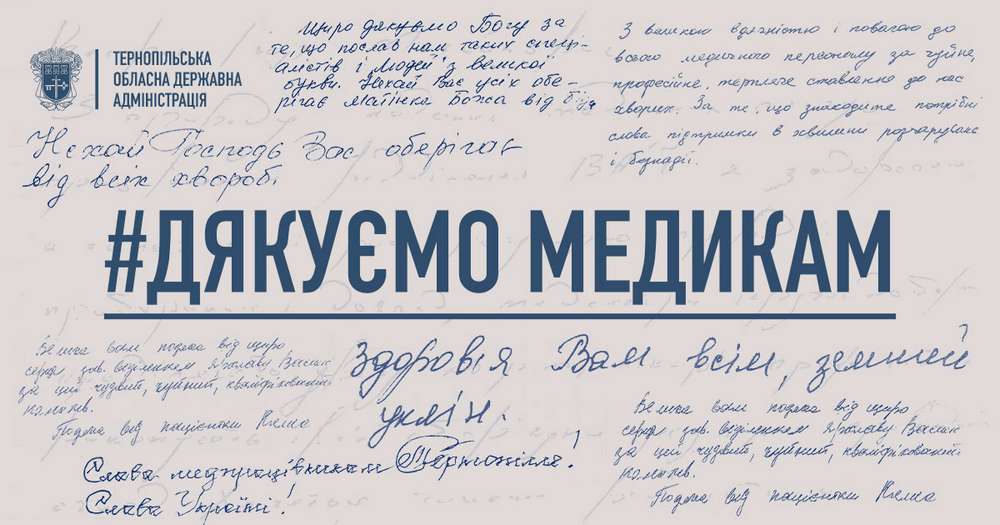 ТЕРНОПІЛЬСЬКА
ОБЛАСНА ДЕРЖАВНА
АДМІНІСТРАЦІЯ
Щиро дякуємо Богу за
те, що послав нам таких спеці-
алістів і "Людей" з великої
букви. Нехай Вас усіх обе-
рігає Матінка Божа від
З великою вдячністю і повагою до
всього медичного персоналу за чуйне,
професійне, терпляче ставлення до нас
хворих. За те, що знаходите потрібні
слова підтримки в хвилини розчарувань
і безнадії.
Нехай Господь Вас оберігає
від всіх хвороб!
#ДЯКУЄМО МЕДИКАМ
Велика вам подяка від щиро
серця зав. відділенням Ярославу
за цей чудовий, чуйний, кваліфікований
Подяка від пацієнтки
Здоров'я Вам всім, земний
уклін.
Слава медпрацівникам Тернопілля!
Слава Україні!
Велика вам подяка від щиро
серця зав. відділенням Ярославу
за цей чудовий, чуйний, кваліфікований
Подяка від пацієнтки